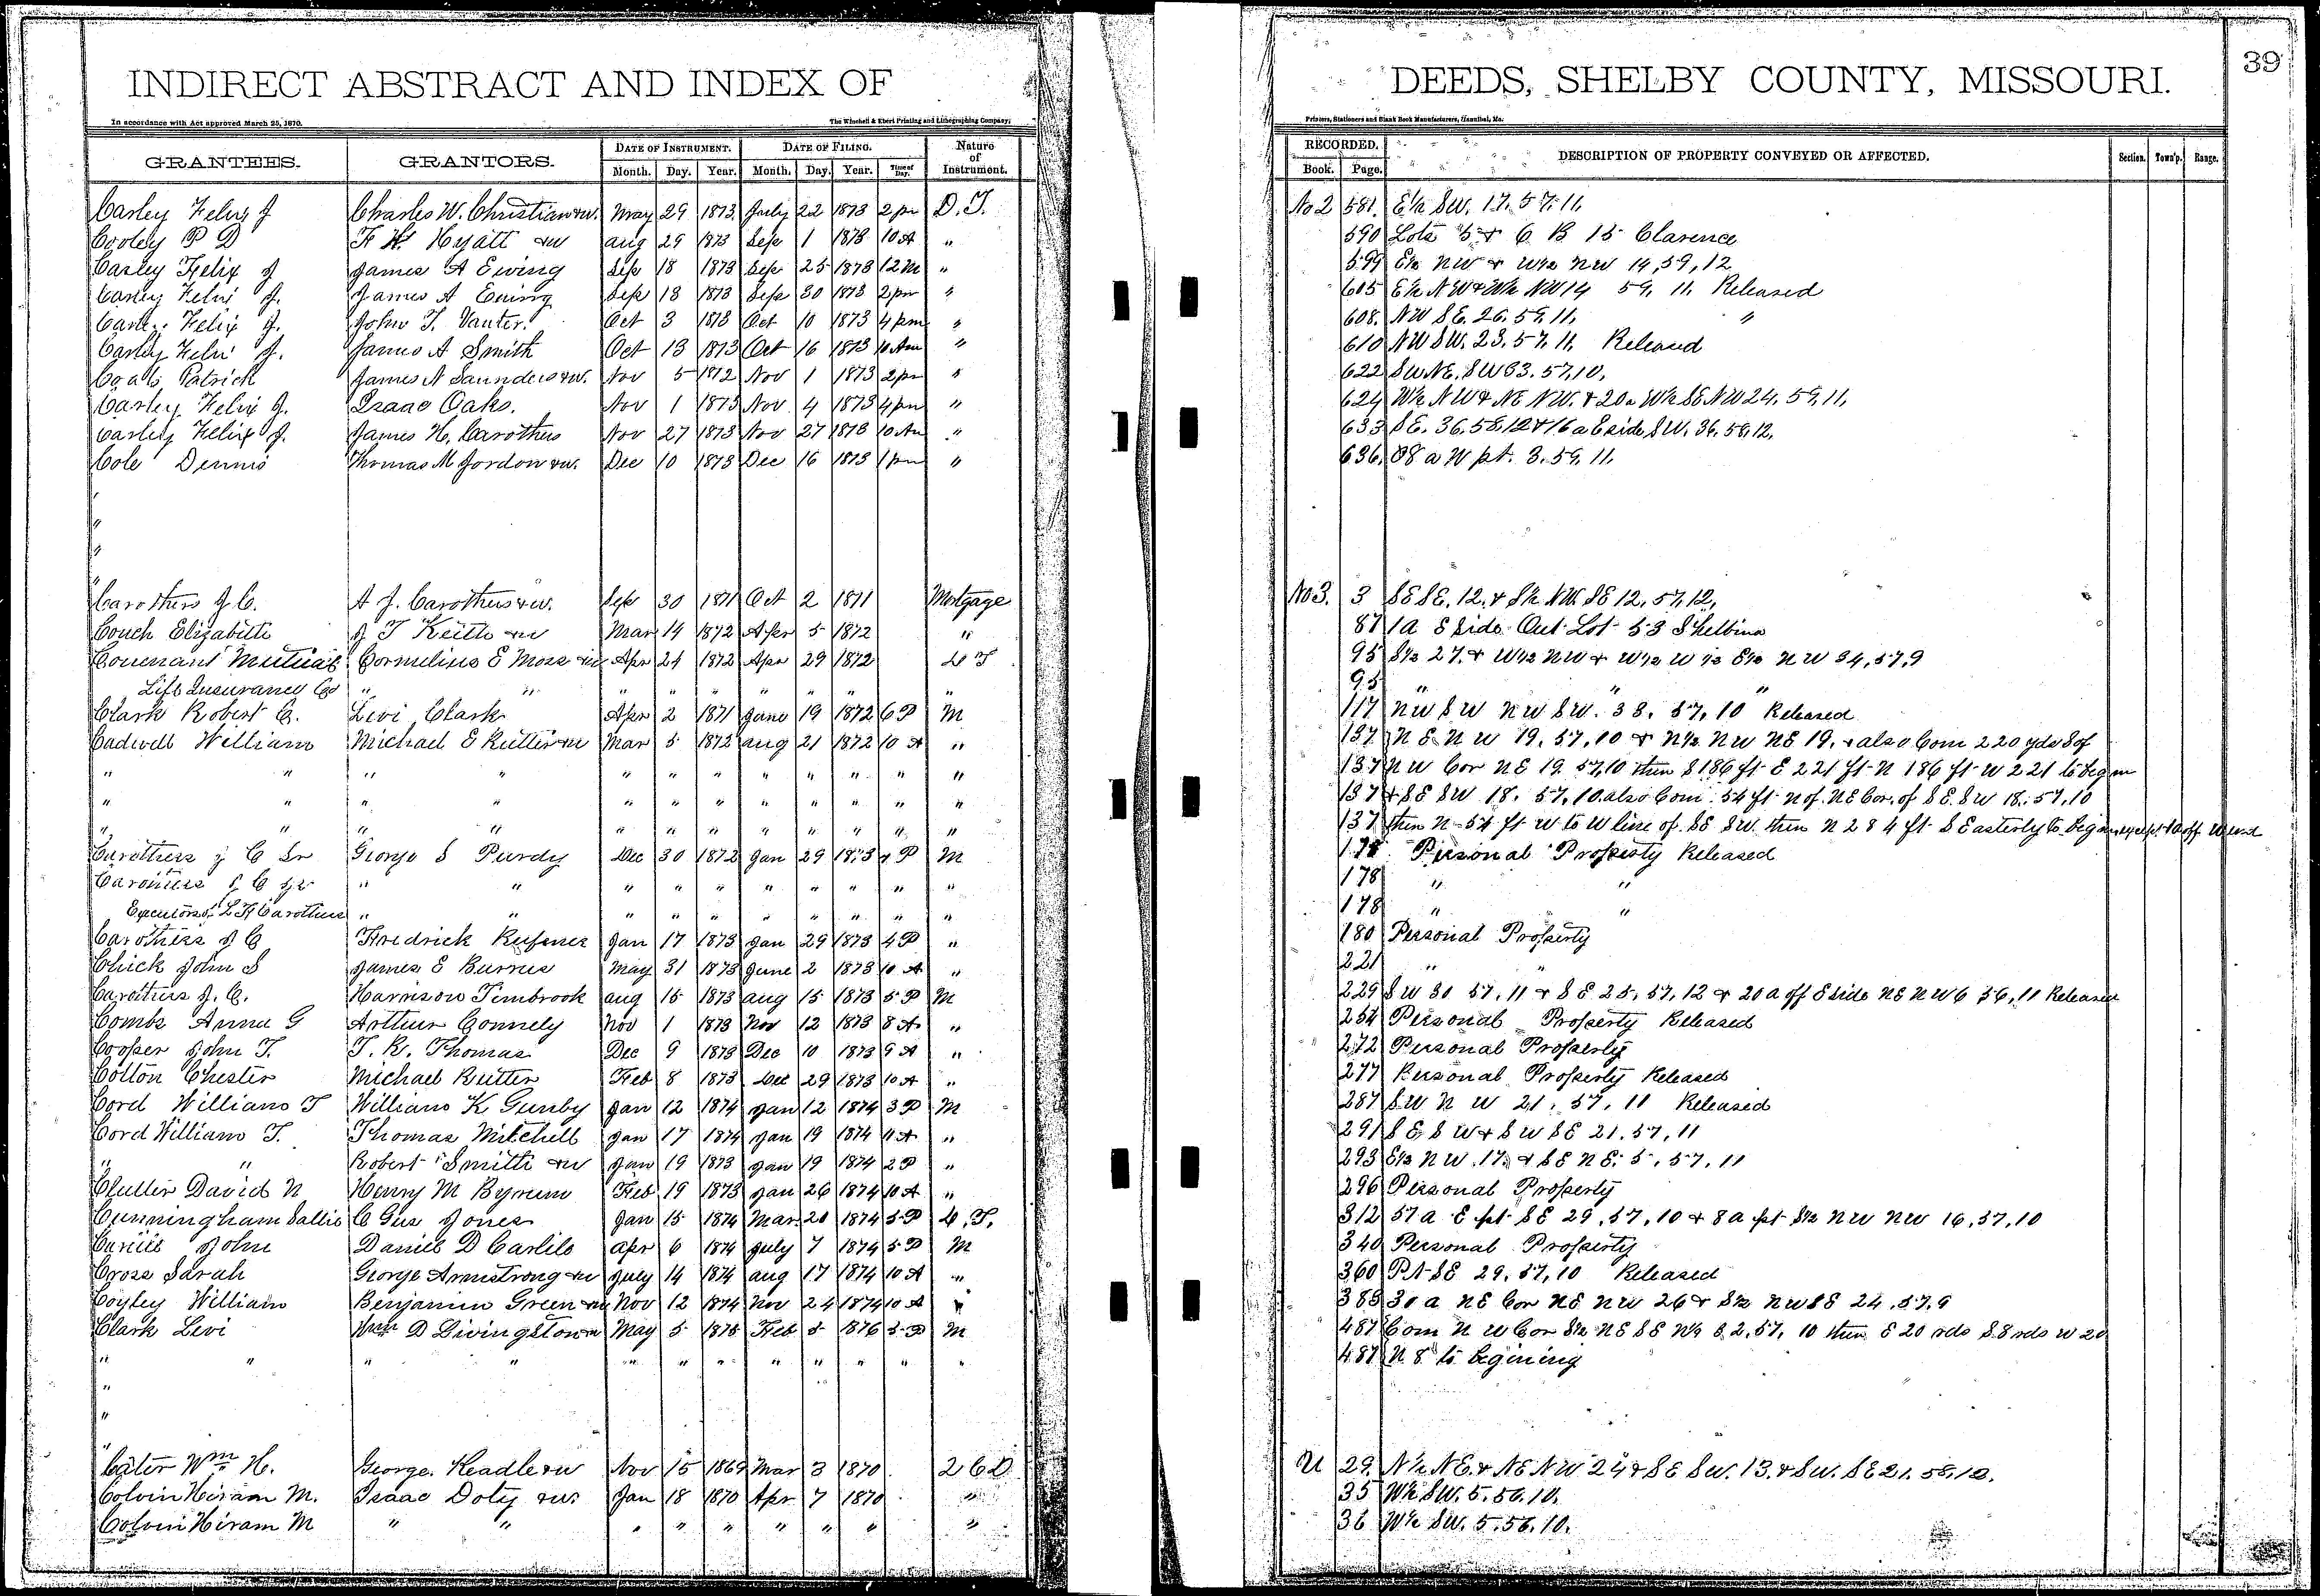 INDIRECT ABSTRACT AND INDEX OF
DEEDS, SHELBY COUNTY, MISSOURI.
39
In accordance with Act approved March 25, 1870.
The Winchell & Ebert Printing and Lithographing Company,
Printers, Stationers and Blank Book Manufacturers, Hannibal, Mo.
GRANTEES. GRANTORS. DATE OF INSTRUMENT. DATE OF FILING. Nature of Instrument. RECORDED. DESCRIPTION OF PROPERTY CONVEYED OR AFFECTED. Section. Town'p. Range.
Month. Day. Year. Month. Day. Year. Time of Day. Book. Page.
Carley Felix J Charles W. Christian & w. May 29 1873 July 22 1873 2 pm D. T. No 2 581. E½ SW. 17. 57. 11.
Cooley P D F H Hyatt & w Aug 29 1873 Sep 1 1873 10 A " 590 Lots 5 & 6 B 15 Clarence
Carley Felix J James A Ewing Sep 18 1873 Sep 25 1873 12 M " 599 E½ NW & W½ NW 14, 59, 12
Carley Felix J. James A Ewing Sep 18 1873 Sep 30 1873 2 pm " 605 E½ NW & W½ NW 14 59. 11. Released
Carley Felix J. John T. Vanter. Oct 3 1873 Oct 10 1873 4 pm " 608. NW SE. 26. 59. 11. "
Carley Felix J. James A Smith Oct 13 1873 Oct 16 1873 10 Am " 610 NW SW. 23. 57. 11. Released
Coals Patrick James N Saunders & w. Nov 5 1872 Nov 1 1873 2 pm " 622 SW NE. SW 33. 57, 10,
Carley Felix J. Isaac Oaks. Nov 1 1873 Nov 4 1873 4 pm " 624 W½ NW & NE NW. & 20 a W½ SE NW 24. 59, 11,
Carley Felix J. James H. Carothers Nov 27 1873 Nov 27 1873 10 Am " 633 SE. 36. 58, 12 & 16 a E side SW. 36. 58, 12.
Cole Dennis Thomas M Jordon & w. Dec 10 1873 Dec 16 1873 1 pm " 636. 88 a W pt. 3. 59, 11.
"
"
"
"
Carothers J C. A J. Carothers & w. Sep 30 1871 Oct 2 1871 Mortgage No 3. 3 SE SE. 12. & S½ NW. SE 12, 57, 12,
Couch Elizabeth J T Keith & w Mar 14 1872 Apr 5 1872 " 87 1 a E Side Out Lot 53 Shelbina
Covenant Mutual Cornelius E Moss & w Apr 24 1872 Apr 29 1872 D T 95 S½ 27. & W½ NW & W½ W½ E½ NW 34, 57, 9
Life Insurance Co " " " " " " " " " 95 " " "
Clark Robert C. Levi Clark Apr 2 1871 June 19 1872 6 P M 117 NW SW NW SW. 33. 57, 10 Released
Cadwell William Michael E Rutter & w Mar 5 1872 Aug 21 1872 10 A " 137 N E N W 19. 57, 10 & N½ NW NE 19. & also Com 220 yds S of
" " " " " " " " " " " " 137 NW Cor NE 19. 57, 10 then S 186 ft E 221 ft N 186 ft W 221 to begin
" " " " " " " " " " " " 137 & SE SW 18. 57, 10. also Com. 54 ft N of NE Cor. of SE. SW 18. 57, 10
" " " " " " " " " " " " 137 then N 54 ft W to W line of SE SW. then N 284 ft S Easterly to begin except 10 off W end
Carothers J C Sr George S Purdy Dec 30 1872 Jan 29 1873 4 P M 178 Personal Property Released
Carothers J C Jr " " " " " " " " " " 178 " "
Executors of L F Carothers " " " " " " " " " " 178 " "
Carothers J C Fredrick Rufener Jan 17 1873 Jan 29 1873 4 P " 180 Personal Property
Chick John S James E Burrus May 31 1873 June 2 1873 10 A " 221 " "
Carothers J. C. Harrison Timbrook Aug 15 1873 Aug 15 1873 5 P M 229 SW 30 57, 11 & SE 25, 57, 12 & 20 a off E side NE NW 6 56, 11 Released
Combs Anna G Arthur Connely Nov 1 1873 Nov 12 1873 8 A " 254 Personal Property Released
Cooper John T. T. R. Thomas Dec 9 1873 Dec 10 1873 9 A " 272 Personal Property
Cotton Chester Michael Rutter Feb 8 1873 Dec 29 1873 10 A " 277 Personal Property Released
Cord William T William K Gunby Jan 12 1874 Jan 12 1874 3 P M 287 SW N W 21, 57, 11 Released
Cord William T. Thomas Mitchell Jan 17 1874 Jan 19 1874 11 A " 291 S E S W & S W SE 21. 57, 11
" " Robert Smith & w Jan 19 1873 Jan 19 1874 2 P " 293 E½ N W. 17. & SE N E. 5, 57, 11
Clutter David N Henry M Byrum Feb 19 1873 Jan 26 1874 10 A " 296 Personal Property
Cunningham Sallie C Gus Jones Jan 15 1874 Mar. 20 1874 5 P D. T. 312 57 a E pt SE 29, 57, 10 & 8 a pt S½ NW NW 16, 57, 10
John Daniel D Carlile Apr 6 1874 July 7 1874 5 P M 340 Personal Property
Cross Sarah George Armstrong & w July 14 1874 Aug 17 1874 10 A " 360 Pt SE 29. 57, 10 Released
Coyley William Benjamin Green & w Nov 12 1874 Nov 24 1874 10 A " 383 30 a NE Cor NE NW 26 & S½ NW SE 24, 57, 9
Clark Levi Wm D Livingstown May 5 1875 Feb 5 1876 5 P M 487 Com N W Cor S½ NE SE W½ S 2, 57, 10 then E 20 rds S 8 rds W 20
" " " " " " " " " " " " 487 N. 8 to begining
"
"
"
Cater Wm H. George. Keadle & w Nov 15 1869 Mar 3 1870. 2 C D U 29. N½ NE. & NE NW 24 & SE SW. 13. & SW. SE 21. 58. 12.
Colvin Hiram M. Isaac Doty & w. Jan 18 1870 Apr 7 1870 " 35 W½ SW. 5. 56. 10.
Colvin Hiram M " " " " " " " " " 36 W½ SW. 5. 56. 10.